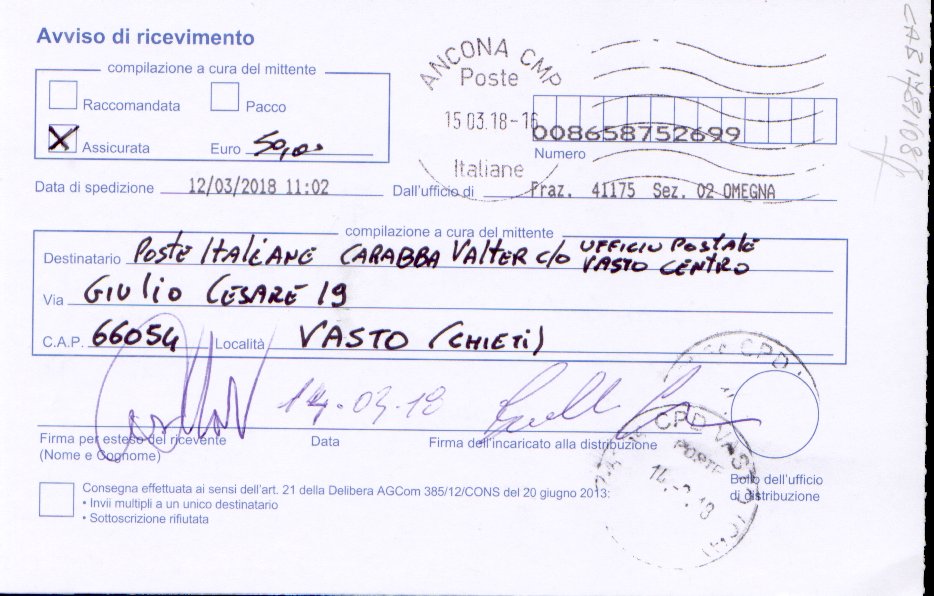 Avviso di ricevimento
ANCONA CMP
Poste
15.03.18-16
Italiane
compilazione a cura del mittente
Raccomandata
Pacco
X Assicurata
Euro 50,00
008658752699
Numero
Data di spedizione 12/03/2018 11:02 Dall'ufficio di Fraz. 41175 Sez. 02 OMEGNA
compilazione a cura del mittente
Destinatario POSTE ITALIANE CARABBA VALTER C/O UFFICIO POSTALE
VASTO CENTRO
Via GIULIO CESARE 19
C.A.P. 66054 Località VASTO (CHIETI)
14-03-18
Firma per esteso del ricevente
(Nome e Cognome)
Data
Firma dell'incaricato alla distribuzione
CPD
CPD VASTO
POSTE
Bollo dell'ufficio
di distribuzione
Consegna effettuata ai sensi dell'art. 21 della Delibera AGCom 385/12/CONS del 20 giugno 2013:
• Invii multipli a un unico destinatario
• Sottoscrizione rifiutata